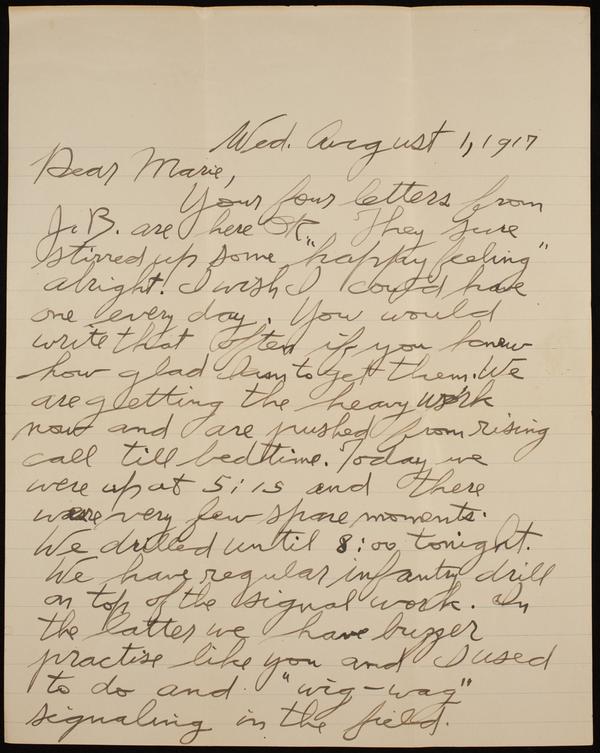 Wed. August 1, 1917
Dear Marie,
Your four letters from
J.B. are here OK. They sure
stirred up some "happy feeling"
alright. I wish I could have
one every day. You would
write that often if you knew
how glad I am to get them. We
are getting the heavy work
now and are pushed from rising
call till bedtime. Today we
were up at 5:15 and there
were very few spare moments.
We drilled until 8:00 tonight.
We have regular infantry drill
on top of the signal work. In
the latter we have buzzer
practise like you and I used
to do and "wig-wag"
signaling in the field.